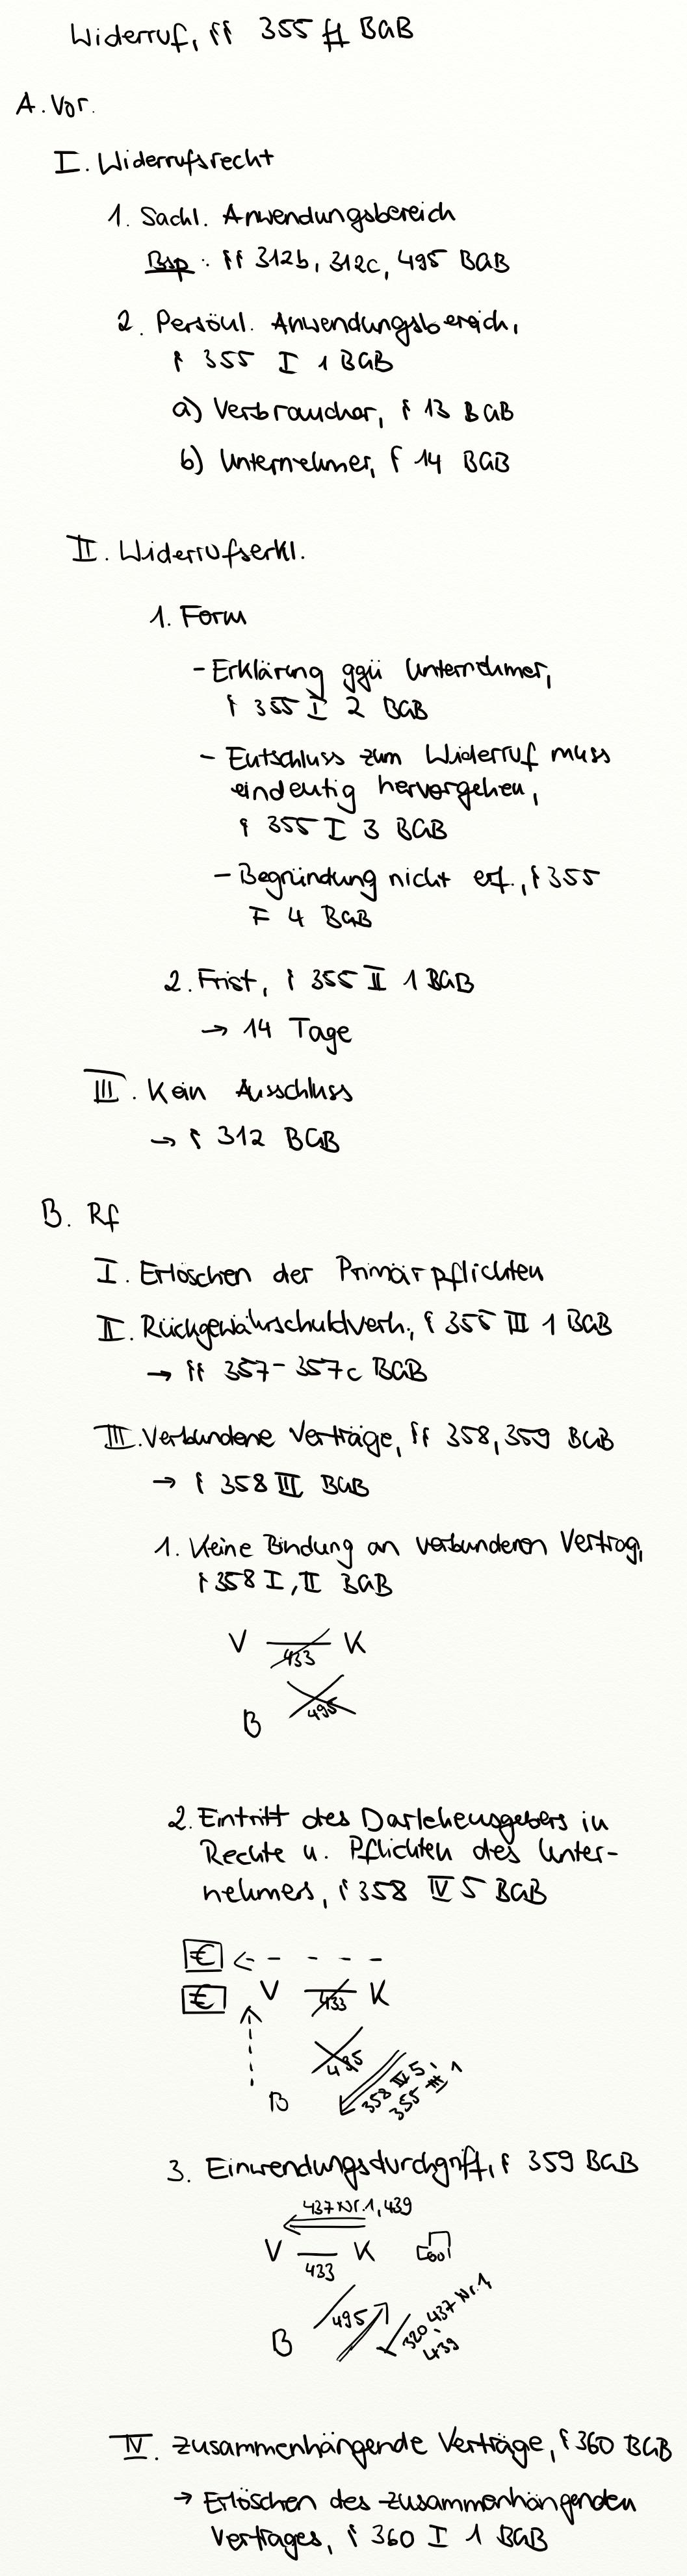 Widerruf, §§ 355 ff BGB
A. Vor.
I. Widerrufsrecht
1. Sachl. Anwendungsbereich
Bsp: §§ 312b, 312c, 495 BGB
2. Persönl. Anwendungsbereich,
§ 355 I 1 BGB
a) Verbraucher, § 13 BGB
b) Unternehmer, § 14 BGB
II. Widerrufserkl.
1. Form
- Erklärung ggü Unternehmer,
§ 355 I 2 BGB
- Entschluss zum Widerruf muss
eindeutig hervorgehen,
§ 355 I 3 BGB
- Begründung nicht erf., § 355
I 4 BGB
2. Frist, § 355 II 1 BGB
→ 14 Tage
III. Kein Ausschluss
→ § 312 BGB
B. Rf
I. Erlöschen der Primärpflichten
II. Rückgewährschuldverh., § 355 III 1 BGB
→ §§ 357-357c BGB
III. Verbundene Verträge, §§ 358, 359 BGB
→ § 358 III BGB
1. Keine Bindung an verbundenen Vertrag,
§ 358 I, II BGB
V 433 K
495
B
2. Eintritt des Darlehensgebers in
Rechte u. Pflichten des Unter-
nehmers, § 358 IV 5 BGB
€
€ V 433 K
495
B 358 IV 5,
355 III 1
3. Einwendungsdurchgriff, § 359 BGB
437 Nr. 1, 439
V 433 K
495
B 320, 437 Nr. 1,
439
IV. Zusammenhängende Verträge, § 360 BGB
→ Erlöschen des zusammenhängenden
Vertrages, § 360 I 1 BGB